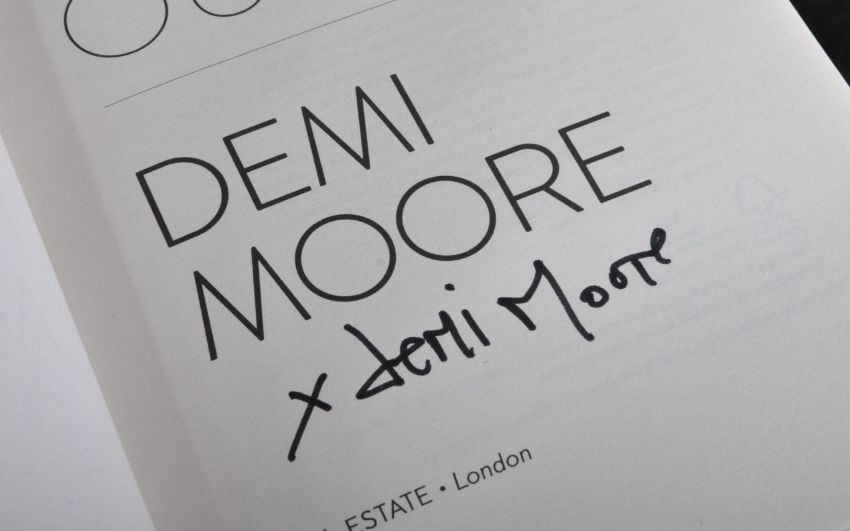 DEMI
MOORE
x Demi Moore
ESTATE • London